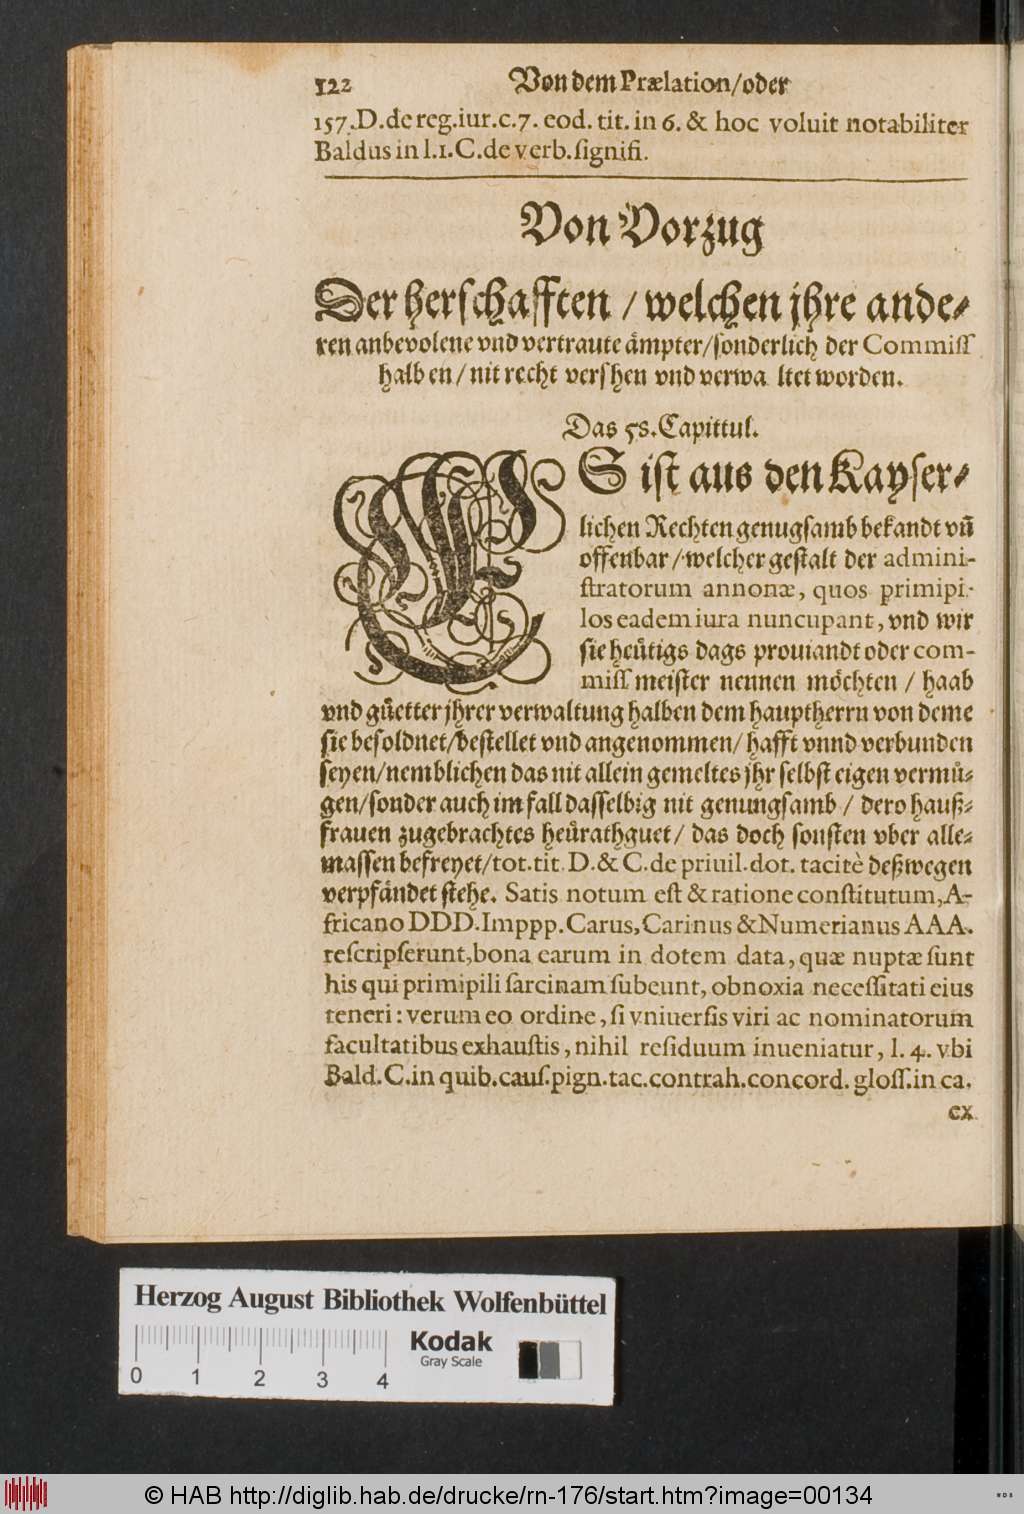 122 Von dem Prælation/oder
157.D.de reg.iur.c.7. eod. tit. in 6. & hoc voluit notabiliter
Baldus in l.1.C.de verb.signifi.
Von Vorzug
Der herschafften / welchen jhre ande-
ren anbevolene vnd vertraute ämpter/sonderlich der Commiss
halben / nit recht versehen vnd verwaltet worden.
Das 58. Capittul.
ES ist aus den Kayser-
lichen Rechten genugsamb bekandt vñ
offenbar / welcher gestalt der admini-
stratorum annonæ, quos primipi-
los eadem iura nuncupant, vnd wir
sie heütigs dags proviandt oder com-
miss meister nennen möchten / haab
vnd güetter jhrer verwaltung halben dem hauptherrn von deme
sie besoldnet/bestellet vnd angenommen/ hafft vnnd verbunden
seyen/nemblichen das nit allein gemeltes jhr selbst eigen vermü-
gen/sonder auch im fall dasselbig nit genungsamb / dero hauß-
frauen zugebrachtes heürathguet / das doch sonsten vber alle-
massen befreyet/tot.tit. D.& C.de priuil.dot. tacitè deßwegen
verpfändet stehe. Satis notum est & ratione constitutum, A-
fricano DDD.Imppp.Carus,Carinus & Numerianus AAA.
rescripserunt,bona earum in dotem data, quæ nuptæ sunt
his qui primipili sarcinam subeunt, obnoxia necessitati eius
teneri : verum eo ordine, si vniuersis viri ac nominatorum
facultatibus exhaustis, nihil residuum inueniatur, l. 4. vbi
Bald. C.in quib.caus.pign.tac.contrah.concord. gloss.in ca.
ex
Herzog August Bibliothek Wolfenbüttel
Kodak
Gray Scale
0 1 2 3 4
© HAB http://diglib.hab.de/drucke/rn-176/start.htm?image=00134